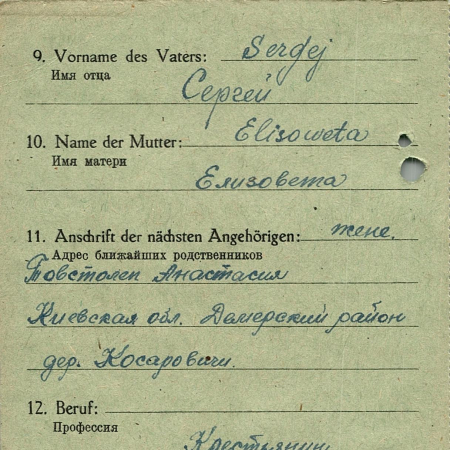 9. Vorname des Vaters: Sergej
Имя отца
Сергей
10. Name der Mutter: Elisoweta
Имя матери
Елизовета
11. Anschrift der nächsten Angehörigen: жене.
Адрес ближайших родственников
Товстолеп Анастасия
Киевская обл. Демерский район
дер. Косаровичи.
12. Beruf:
Профессия
Крестьянин